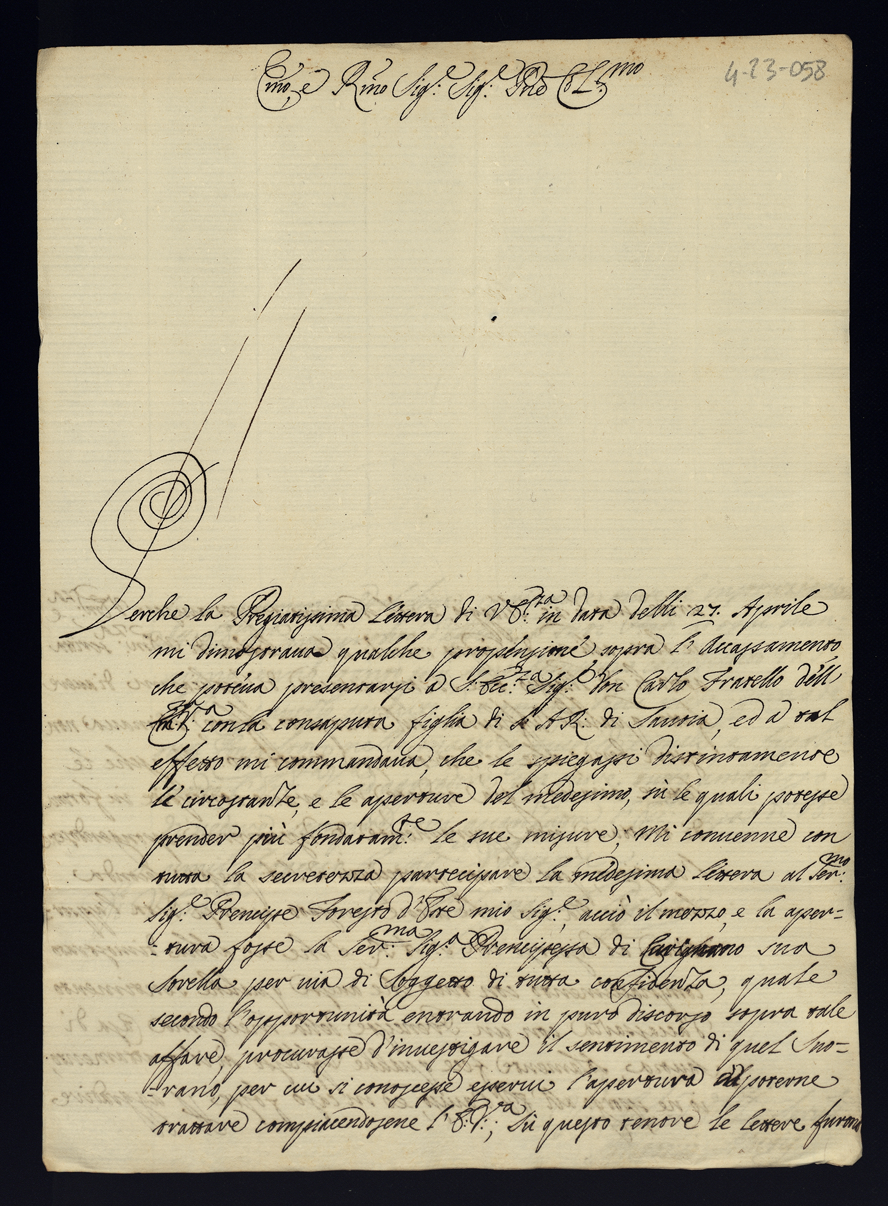 4-23-058
Emo, e Rmo Sig.e Sig.e Pne Col.mo
Perche la Pregiatissima lettera di V. E.za in data delli 27. Aprile
mi dimostraua qualche propensione sopra l' Accassamento
che poteua presentarsi a S. Ecc.za Sig.e Don Carlo Fratello dell'
con la consaputa figlia di S. A. R. di Sauoia, ed a tal
effetto mi commandaua, che le spiegassi distintamente
le circostanze, e le aperture del medesimo, sù le quali potesse
prender più fondatam.te le sue misure, Mi conuenne con
tutta la secretezza partecipare la medesima lettera al Ser.mo
Sig.e Prencipe Foresto d'Este mio Sig.e, acciò il mezzo, e la aper-
-tura fosse la Ser.ma Sig.a Prencipessa di Carignano sua
Sorella per uia di Soggetto di tutta confidenza, quale
secondo l'opportunità entrando in puro discorso sopra tale
affare, procurasse d'inuestigare il sentimento di quel Sho-
-rano, per cui si conoscesse esserui l'apertura di poterne
trattare compiacendosene l' E. V.a; Sù questo tenore le lettere furono